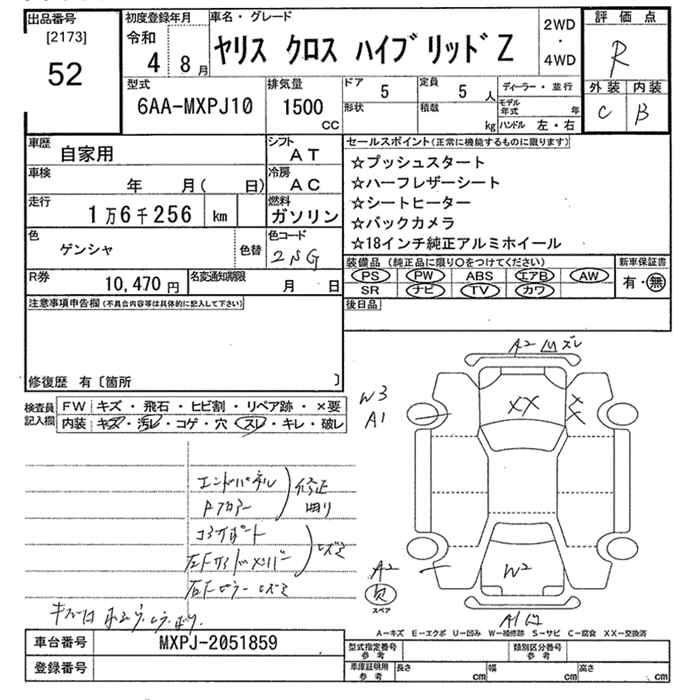 出品番号
[2173]
52
初度登録年月
令和
4 8月
車名・グレード
ヤリス クロス ハイブリッド Z
2WD
・
4WD
評価点
R
外装 内装
C B
型式
6AA-MXPJ10
排気量
1500
CC
ドア 5
形状
定員 5人
積載 kg
ディーラー・並行
モデル年式 年
ハンドル 左・右
車歴
自家用
車検
年 月( 日)
走行
1万6千256 km
色
ゲンシャ
色替
シフト
AT
冷房
AC
燃料
ガソリン
色コード
R券
10,470円
名変通知期限
月 日
セールスポイント(正常に機能するものに限ります)
☆プッシュスタート
☆ハーフレザーシート
☆シートヒーター
☆バックカメラ
☆18インチ純正アルミホイール
装備品(純正品に限り○をつけてください)
PS PW ABS エアB AW
SR ナビ TV カワ
新車保証書
有・無
後日品
注意事項申告欄(不具合内容等は具体的に記入して下さい)
修復歴 有〔箇所 〕
検査員
記入欄
FW キズ・飛石・ヒビ割・リペア跡・×要
内装 キズ・汚レ・コゲ・穴・スレ・キレ・破レ
エンドパネル
Aピラー
修正
コアサポート
A2 ズレ
W3
A1
XX
X
X
W2
A2
スペア
A1
A-キズ E-エクボ U-凹み W-補修跡 S-サビ C-腐食 XX-交換済
車台番号
MXPJ-2051859
登録番号
型式指定番号
参考
類別区分番号
参考
車庫証明用
参考
長さ cm
幅 cm
高さ cm